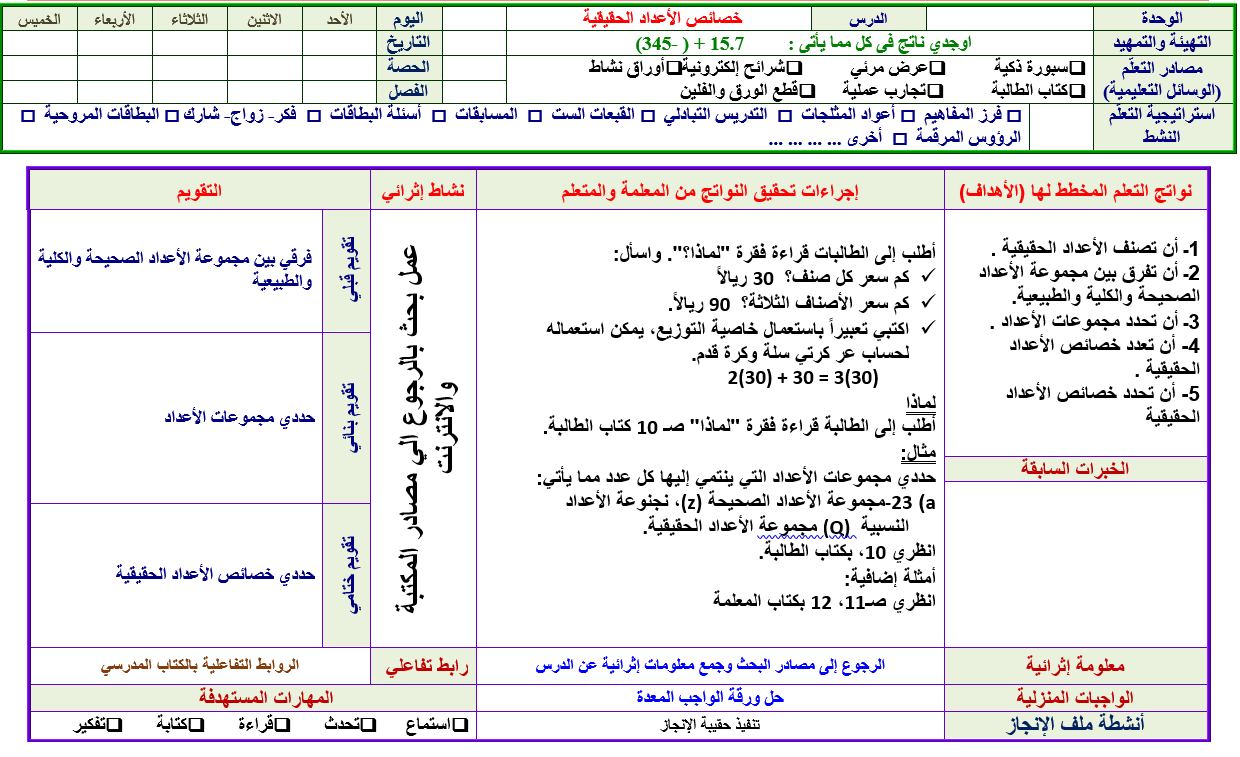 الوحدة
الدرس
خصائص الأعداد الحقيقية
اليوم
الأحد
الاثنين
الثلاثاء
الأربعاء
الخميس
التهيئة والتمهيد
اوجدي ناتج في كل مما يأتي : 15.7 + ( -345)
التاريخ
مصادر التعلّم
(الوسائل التعليمية)
❑سبورة ذكية ❑عرض مرئي ❑شرائح إلكترونية❑أوراق نشاط
❑كتاب الطالبة ❑تجارب عملية ❑قطع الورق والفلين
الحصة
الفصل
استراتيجية التعلّم
النشط
□ فرز المفاهيم □ أعواد المثلجات □ التدريس التبادلي □ القبعات الست □ المسابقات □ أسئلة البطاقات □ فكر- زواج- شارك □ البطاقات المروحية □
الرؤوس المرقمة □ أخرى ... ... ... ...
نواتج التعلم المخطط لها (الأهداف)
إجراءات تحقيق النواتج من المعلمة والمتعلم
نشاط إثرائي
التقويم
1- أن تصنف الأعداد الحقيقية .
2- أن تفرق بين مجموعة الأعداد
الصحيحة والكلية والطبيعية.
3- أن تحدد مجموعات الأعداد .
4- أن تعدد خصائص الأعداد
الحقيقية .
5- أن تحدد خصائص الأعداد
الحقيقية
الخبرات السابقة
أطلب إلى الطالبات قراءة فقرة "لماذا؟". واسأل:
✓ كم سعر كل صنف؟ 30 ريالاً
✓ كم سعر الأصناف الثلاثة؟ 90 ريالاً.
✓ اكتبي تعبيراً باستعمال خاصية التوزيع، يمكن استعماله
لحساب عر كرتي سلة وكرة قدم.
2(30) + 30 = 3(30)
لماذا
أطلب إلى الطالبة قراءة فقرة "لماذا" صـ 10 كتاب الطالبة.
مثال:
حددي مجموعات الأعداد التي ينتمي إليها كل عدد مما يأتي:
a) 23-مجموعة الأعداد الصحيحة (z)، نجنوعة الأعداد
النسبية (Q) مجموعة الأعداد الحقيقية.
انظري 10، بكتاب الطالبة.
أمثلة إضافية:
انظري صـ11، 12 بكتاب المعلمة
عمل بحث بالرجوع الي مصادر المكتبة
والانترنت
تقويم قبلي
فرقي بين مجموعة الأعداد الصحيحة والكلية
والطبيعية
تقويم بنائي
حددي مجموعات الأعداد
تقويم ختامي
حددي خصائص الأعداد الحقيقية
معلومة إثرائية
الرجوع إلى مصادر البحث وجمع معلومات إثرائية عن الدرس
رابط تفاعلي
الروابط التفاعلية بالكتاب المدرسي
الواجبات المنزلية
حل ورقة الواجب المعدة
المهارات المستهدفة
أنشطة ملف الإنجاز
تنفيذ حقيبة الإنجاز
❑استماع ❑تحدث ❑قراءة ❑كتابة ❑تفكير